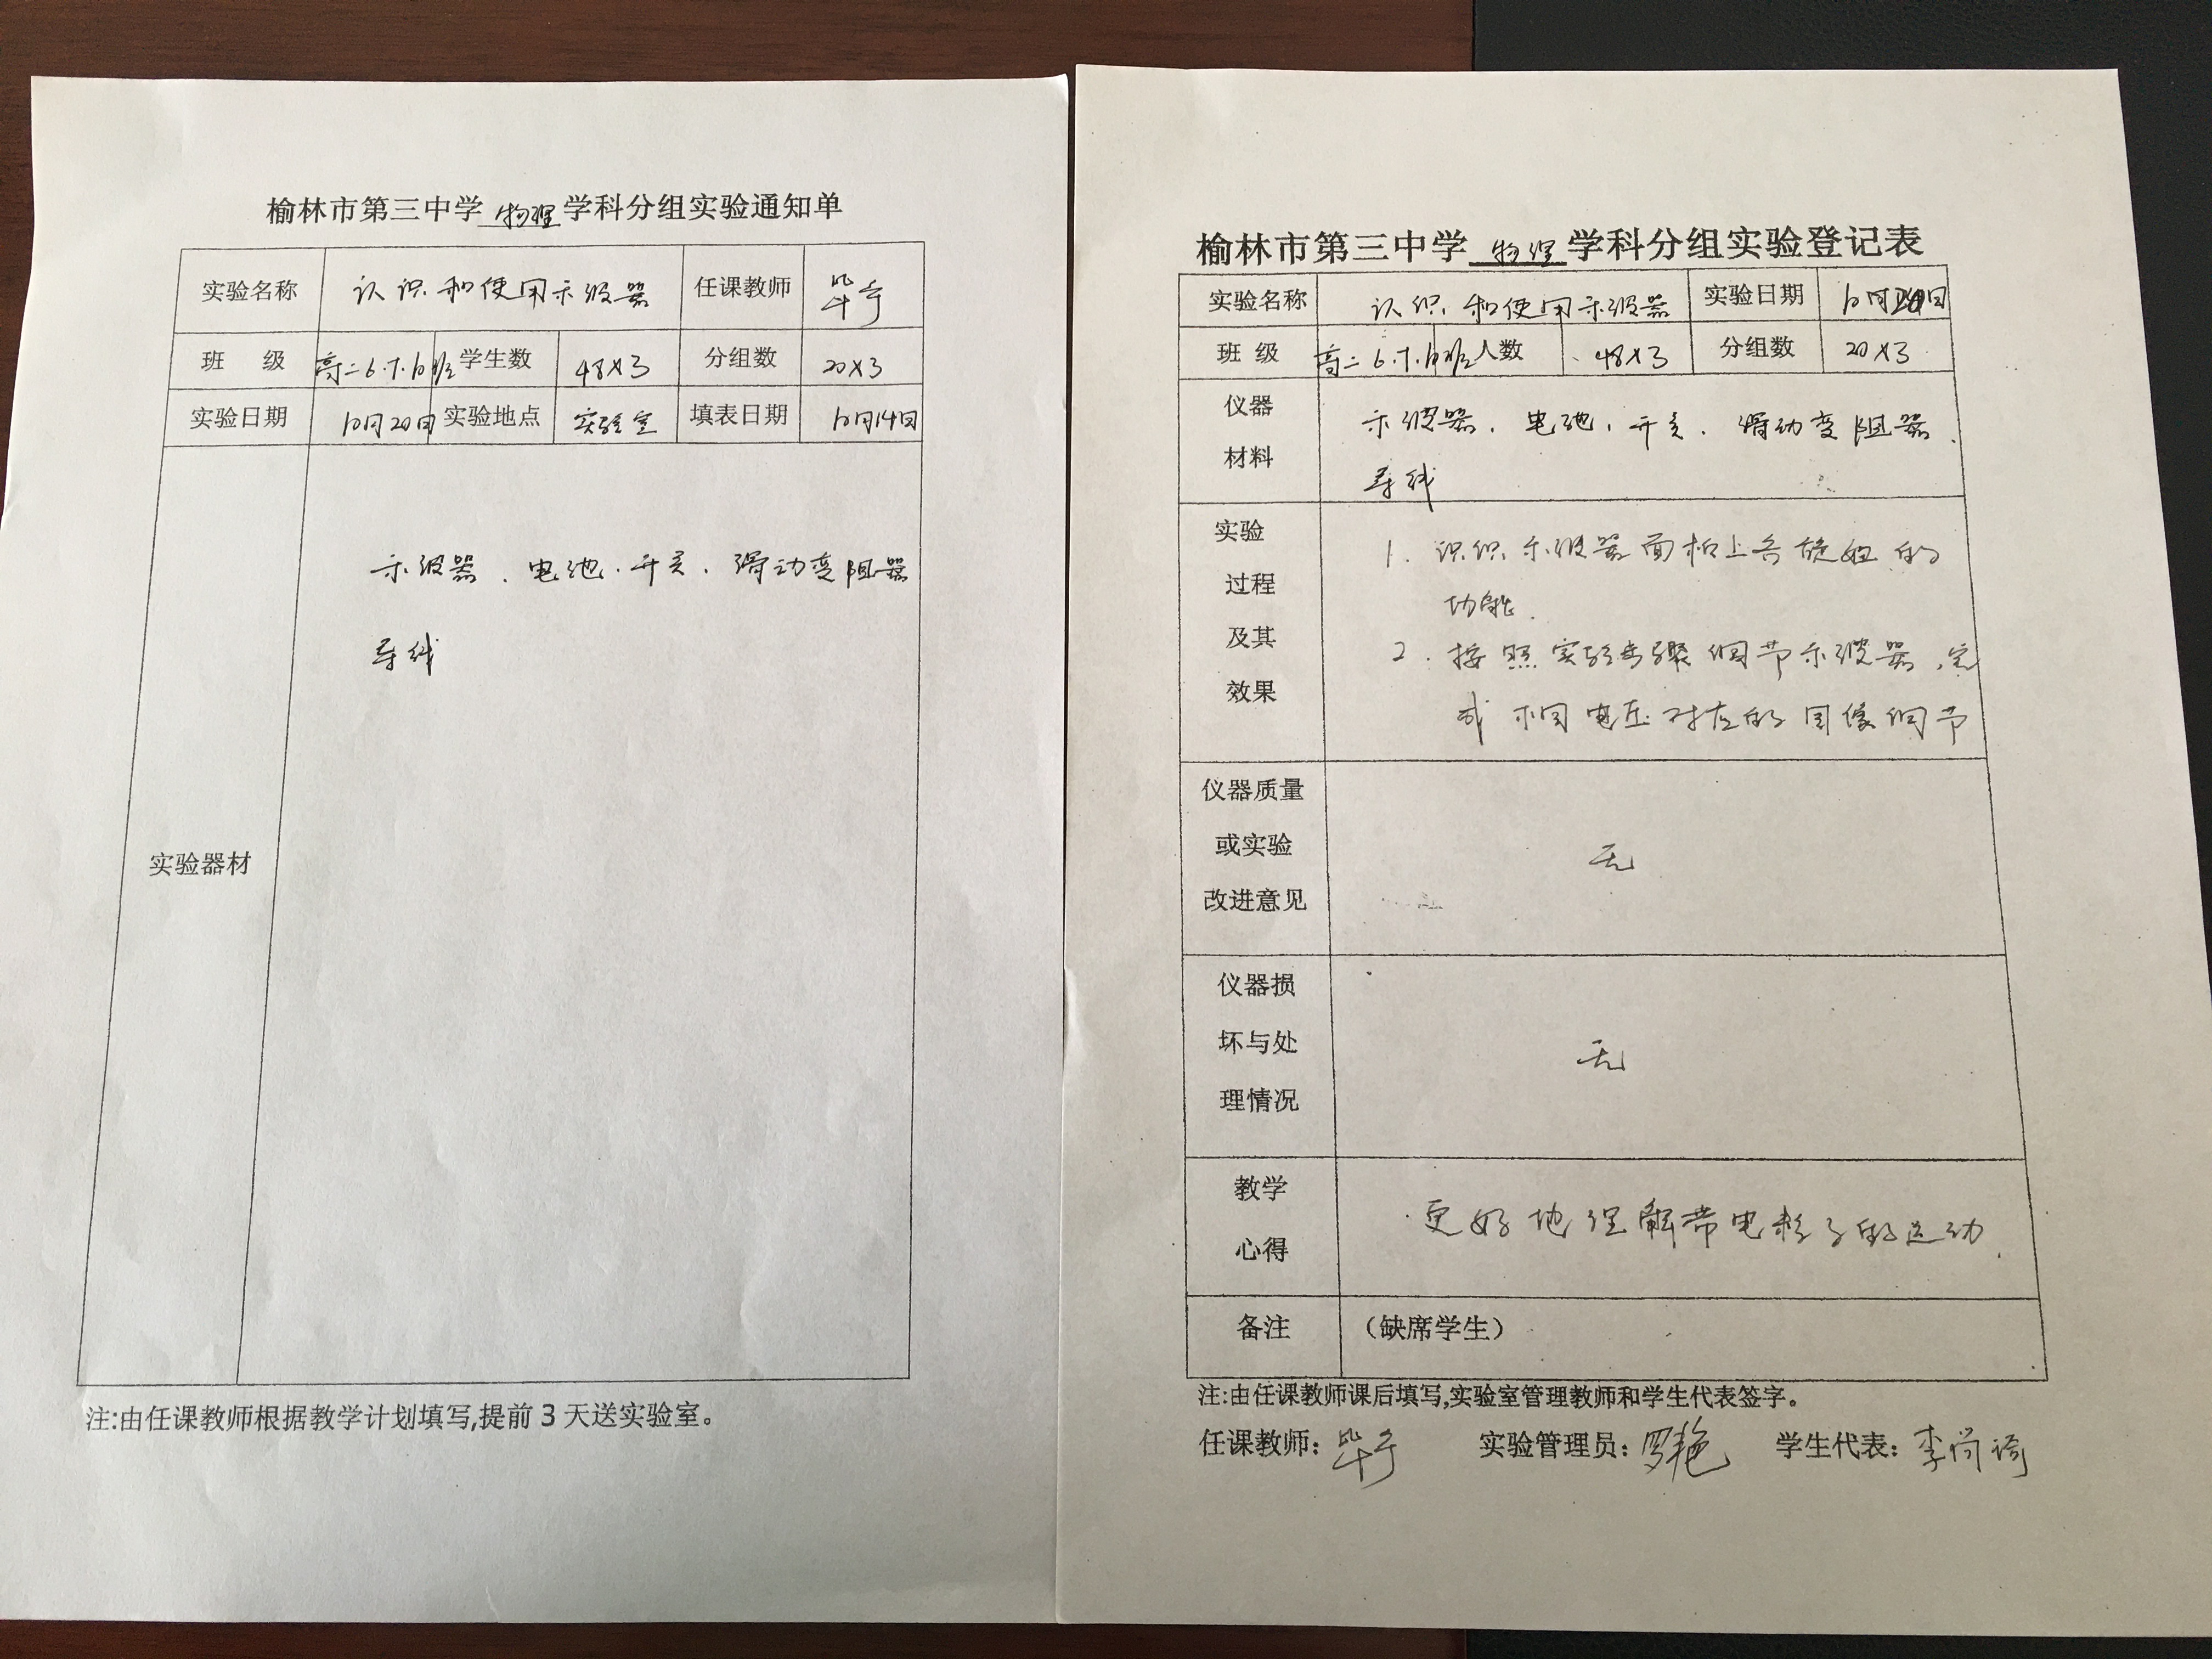 榆林市第三中学 物理 学科分组实验通知单
实验名称 认识和使用示波器 任课教师 毕予
班 级 高二6.7.10班 学生数 48×3 分组数 20×3
实验日期 10月20日 实验地点 实验室 填表日期 10月14日
实验器材
示波器、电池、开关、滑动变阻器
导线
注:由任课教师根据教学计划填写,提前3天送实验室。
榆林市第三中学 物理 学科分组实验登记表
实验名称 认识和使用示波器 实验日期 10月20日
班 级 高二6.7.10班 人数 48×3 分组数 20×3
仪器
材料
示波器、电池、开关、滑动变阻器、
导线
实验
过程
及其
效果
1. 识识示波器面板上各旋钮的
功能.
2. 按照实验步骤调节示波器,完
成不同电压对应的图像调节
仪器质量
或实验
改进意见
无
仪器损
坏与处
理情况
无
教学
心得
更好地理解带电粒子的运动.
备注 (缺席学生)
注:由任课教师课后填写,实验室管理教师和学生代表签字。
任课教师: 毕予 实验管理员: 罗艳 学生代表: 李尚